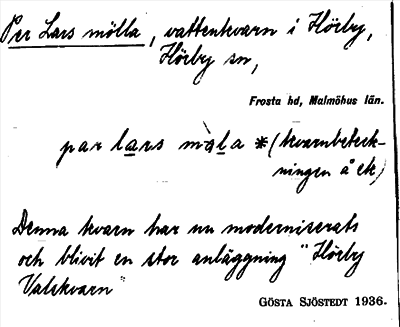 Per Lars mölla, vattenkvarn i Hörby,
Hörby sn,
Frosta hd, Malmöhus län.
par lars möla * (kvarnbeteck-
ningen å ek)
Denna kvarn har nu moderniserats
och blivit en stor anläggning "Hörby
Valskvarn"
GÖSTA SJÖSTEDT 1936.